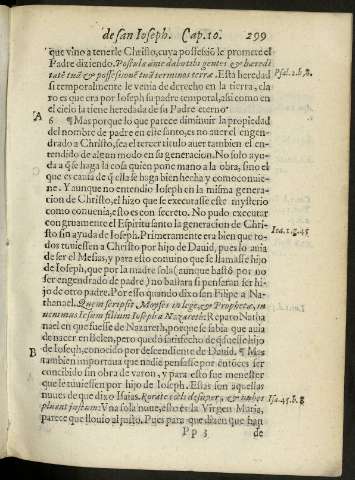 de san Ioseph. Cap.10. 299
que vino a tenerle Christo, cuya possessiō le promete el
Padre diziendo. Postula à me dabo tibi gentes & hæredi
tatē tuā & possessionē tuā terminos terræ. Esta heredad
si temporalmente le venia de derecho en la tierra, cla
ro es que era por Ioseph su padre temporal, assi como en
el cielo la tiene heredada de su Padre eterno.
Psal.2.b,8.
A
6 ¶ Mas porque lo que parece diminuir la propiedad
del nombre de padre en este santo, es no auer el engen
drado a Christo, sea el tercer titulo auer tambien el en
tendido de algun modo en su generacion. No solo ayu
da a q̃ se haga la cosa quien pone mano a la obra, sino el
que es causa de q̃ ella se haga bien hecha y como conuie
ne. Y aunque no entendio Ioseph en la misma genera
cion de Christo, el hizo que se executasse este mysterio
como conuenia, esto es con secreto. No pudo executar
congruamente el Espiritu santo la generacion de Chri
sto sin ayuda de Ioseph. Primeramente era bien que to-
dos tuuiessen a Christo por hijo de Dauid, pues lo auia
de ser el Mesias, y para esto conuino que se llamasse hijo
de Ioseph, que por la madre sola (aunque bastô por no
ser engendrado de padre) no bastara si pensaran ser hi-
jo de otro padre. Por esso quando dixo san Filipe a Na-
thanael. Quem scripsit, Moyses in lege, & Prophetæ, in
uenimus Iesum filium Ioseph a Nazareth: Reparo Natha
nael en que fuesse de Nazareth, porque se sabia que auia
de nacer en Belen, pero quedó satisfecho de q̃ fuesse hijo
de Ioseph, conocido por descendiente de Dauid. ¶ Mas
Ioa.1.g.45
B
tambien importaua que nadie pensasse por entōces ser
concibido sin obra de varon, y para esto fue menester
que le tuuiessen por hijo de Ioseph. Estas son aquellas
nuues de que dixo Isaias. Rorate cœli desuper, & nubes
pluant justum: Vna sola nuue, esto es la Virgen Maria,
parece que llouio al justo. Pues para que dizen que han
Isa.45.b.8
Pp 3 de